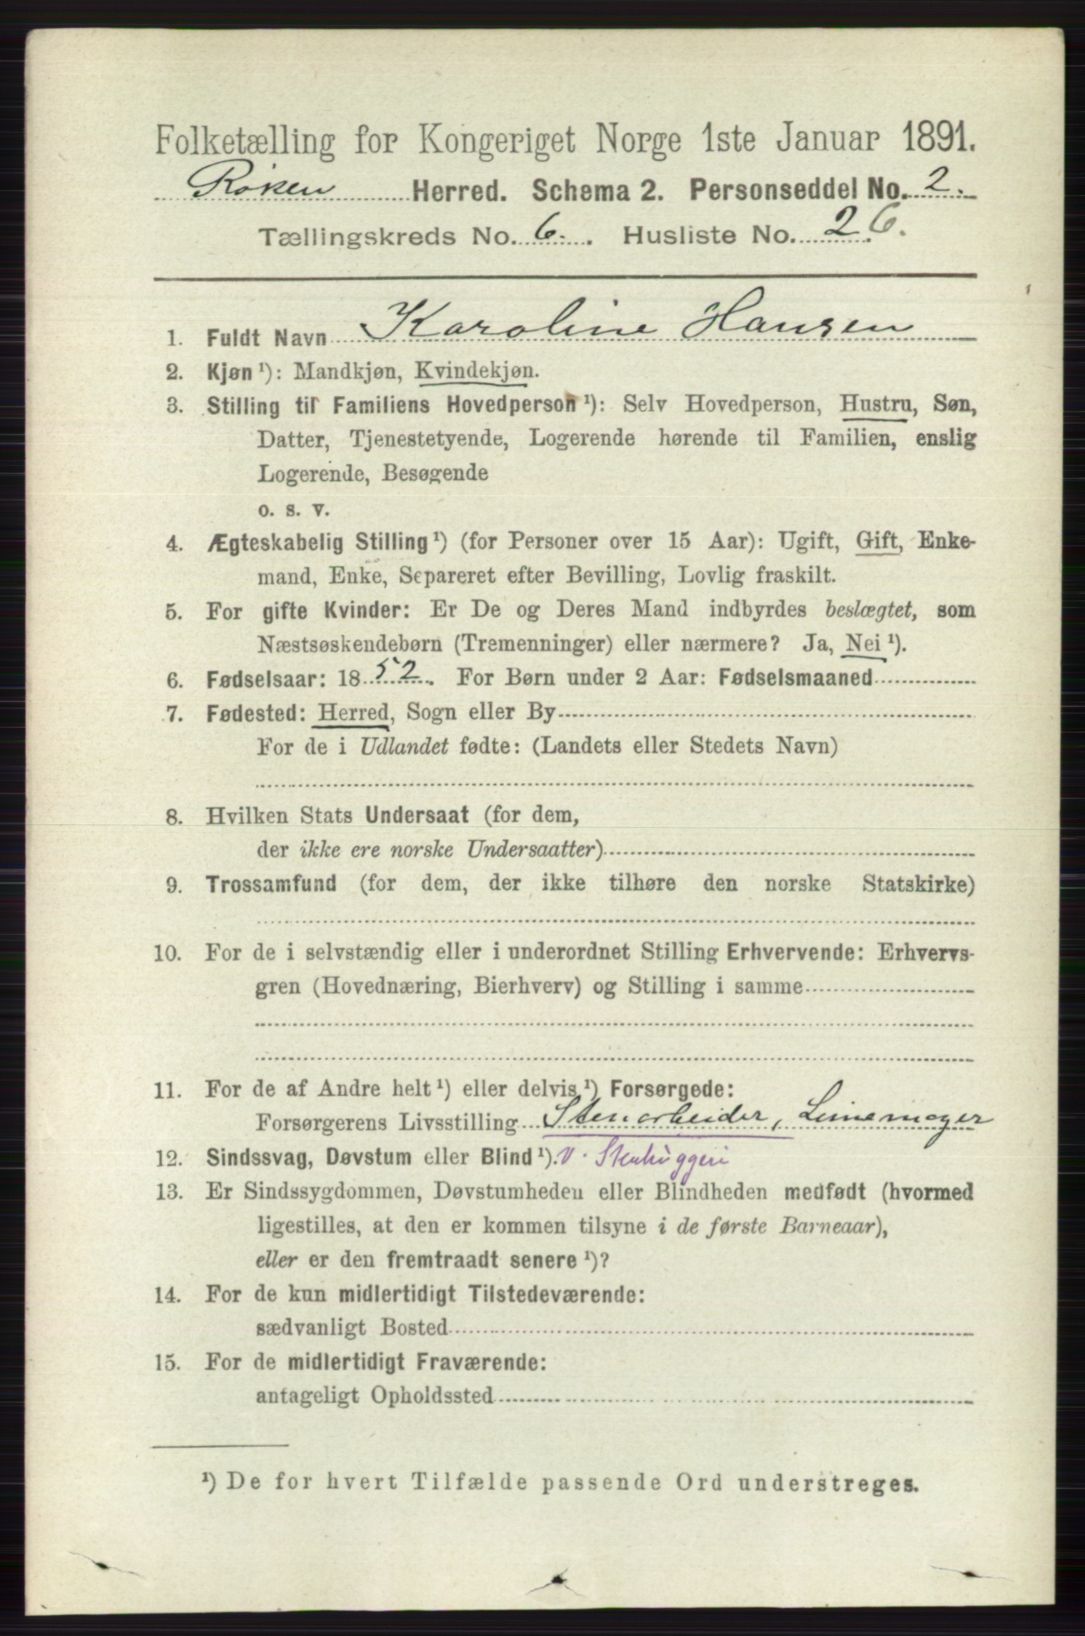 Folketælling for Kongeriget Norge 1ste Januar 1891.
Röken Herred. Schema 2. Personseddel No. 2.
Tællingskreds No. 6. Husliste No. 26.
1. Fuldt Navn Karoline Hansen
2. Kjøn ¹): Mandkjøn, Kvindekjøn.
3. Stilling til Familiens Hovedperson ¹): Selv Hovedperson, Hustru, Søn,
Datter, Tjenestetyende, Logerende hørende til Familien, enslig
Logerende, Besøgende
o. s. v.
4. Ægteskabelig Stilling ¹) (for Personer over 15 Aar): Ugift, Gift, Enke-
mand, Enke, Separeret efter Bevilling, Lovlig fraskilt.
5. For gifte Kvinder: Er De og Deres Mand indbyrdes beslægtet, som
Næstsøskendebørn (Tremenninger) eller nærmere? Ja, Nei ¹).
6. Fødselsaar: 1852. For Børn under 2 Aar: Fødselsmaaned
7. Fødested: Herred, Sogn eller By
For de i Udlandet fødte: (Landets eller Stedets Navn)
8. Hvilken Stats Undersaat (for dem,
der ikke ere norske Undersaatter)
9. Trossamfund (for dem, der ikke tilhøre den norske Statskirke)
10. For de i selvstændig eller i underordnet Stilling Erhvervende: Erhvervs-
gren (Hovednæring, Bierhverv) og Stilling i samme
11. For de af Andre helt ¹) eller delvis ¹) Forsørgede:
Forsørgerens Livsstilling Stenarbeider,
12. Sindssvag, Døvstum eller Blind ¹). v. Stenhuggeri
13. Er Sindssygdommen, Døvstumheden eller Blindheden medfødt (hvormed
ligestilles, at den er kommen tilsyne i de første Barneaar),
eller er den fremtraadt senere ¹)?
14. For de kun midlertidigt Tilstedeværende:
sædvanligt Bosted
15. For de midlertidigt Fraværende:
antageligt Opholdssted
¹) De for hvert Tilfælde passende Ord understreges.